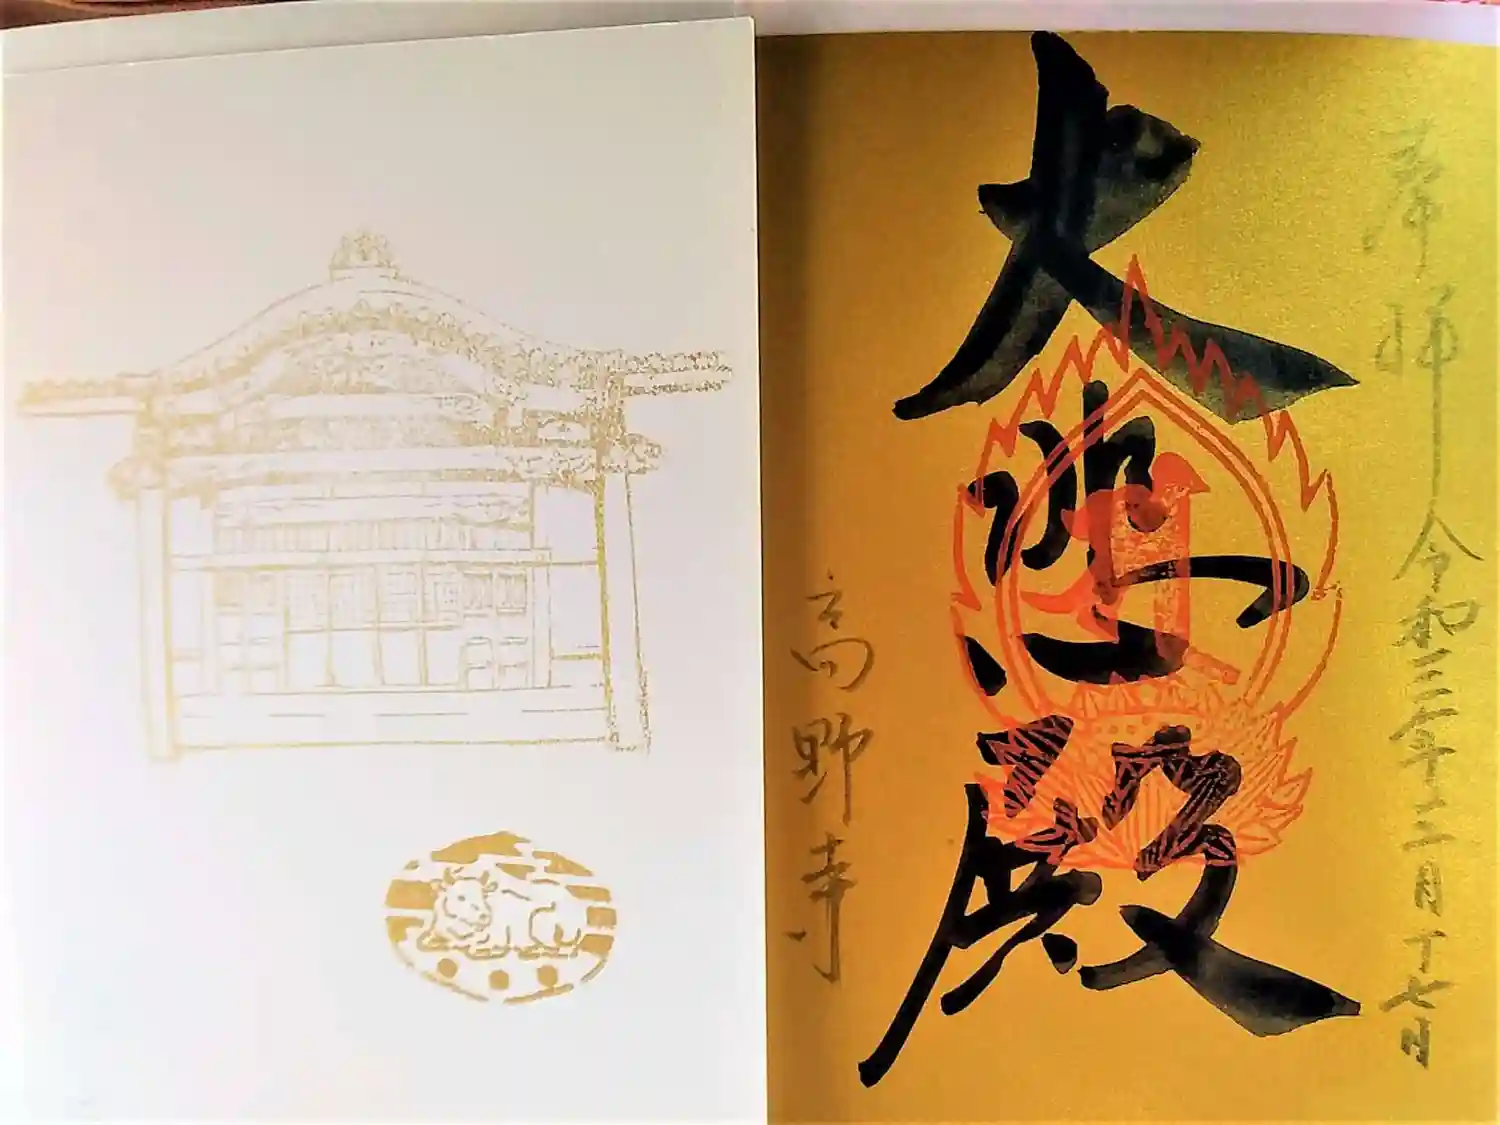 奉拝 令和三年二月十七日
大悲殿
高野寺